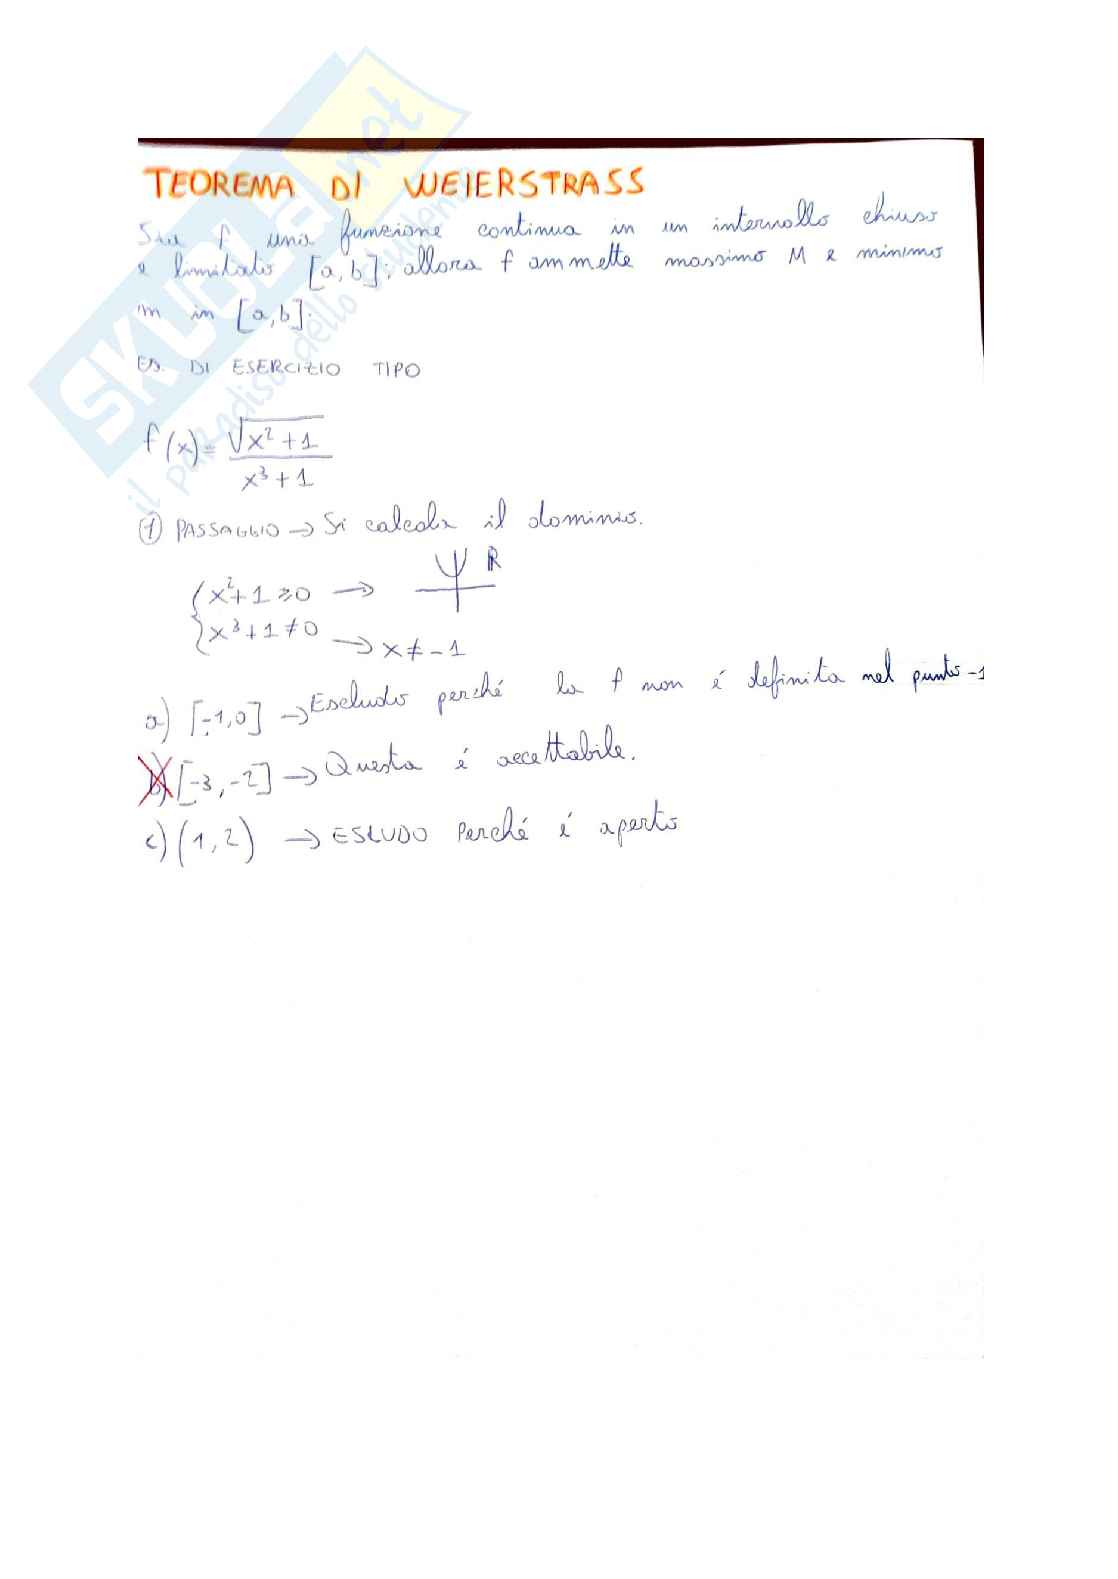 SKUOLA.net
il paradiso dello studente
TEOREMA DI WEIERSTRASS
Sia f una funzione continua in un intervallo chiuso
e limitato [a,b]; allora f ammette massimo M e minimo
m in [a,b].
ES. DI ESERCIZIO TIPO
f(x)= √(x²+1) / (x³+1)
① PASSAGGIO → Si calcola il dominio.
{ x²+1 ≥ 0 → ℝ
{ x³+1 ≠ 0 → x ≠ -1
a) [-1,0] → Escludo perché la f non é definita nel punto -1
b) [-3,-2] → Questa é accettabile.
c) (1,2) → ESLUDO Perché é aperto